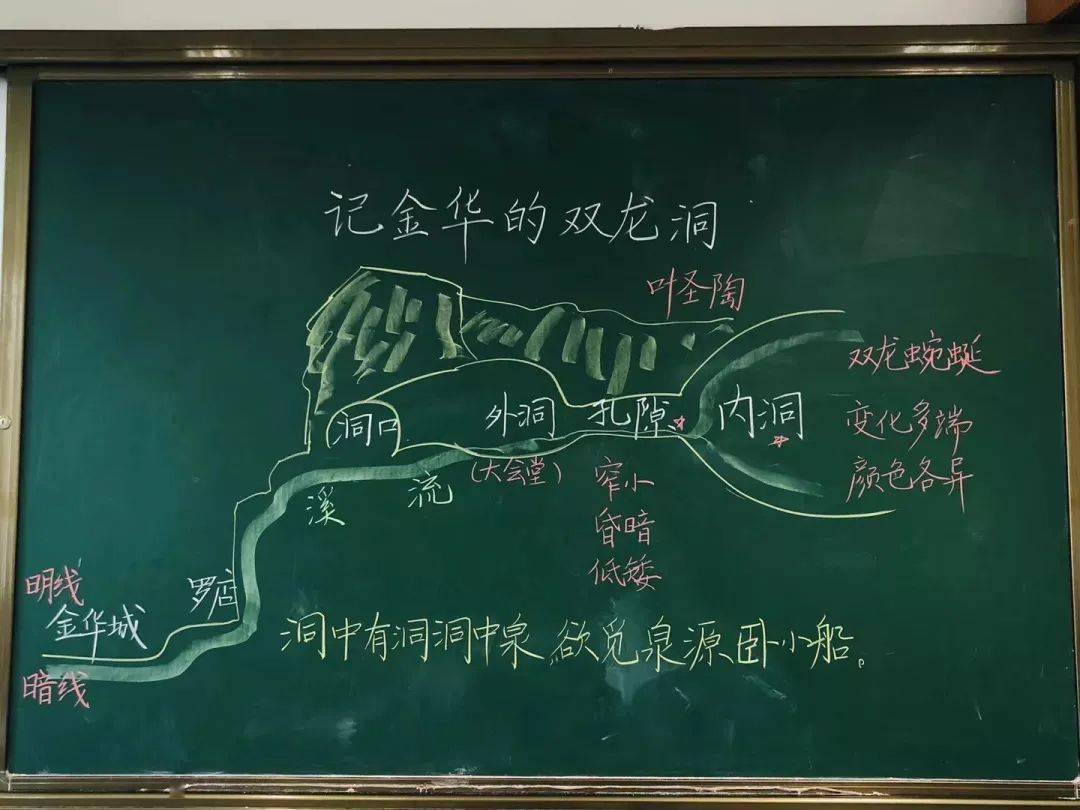 记金华的双龙洞
叶圣陶
双龙蜿蜒
洞口 外洞 孔隙 内洞
变化多端
(大会堂)
颜色各异
溪流
窄小
昏暗
低矮
明线
罗店
金华城
洞中有洞洞中泉 欲觅泉源卧小船。
暗线